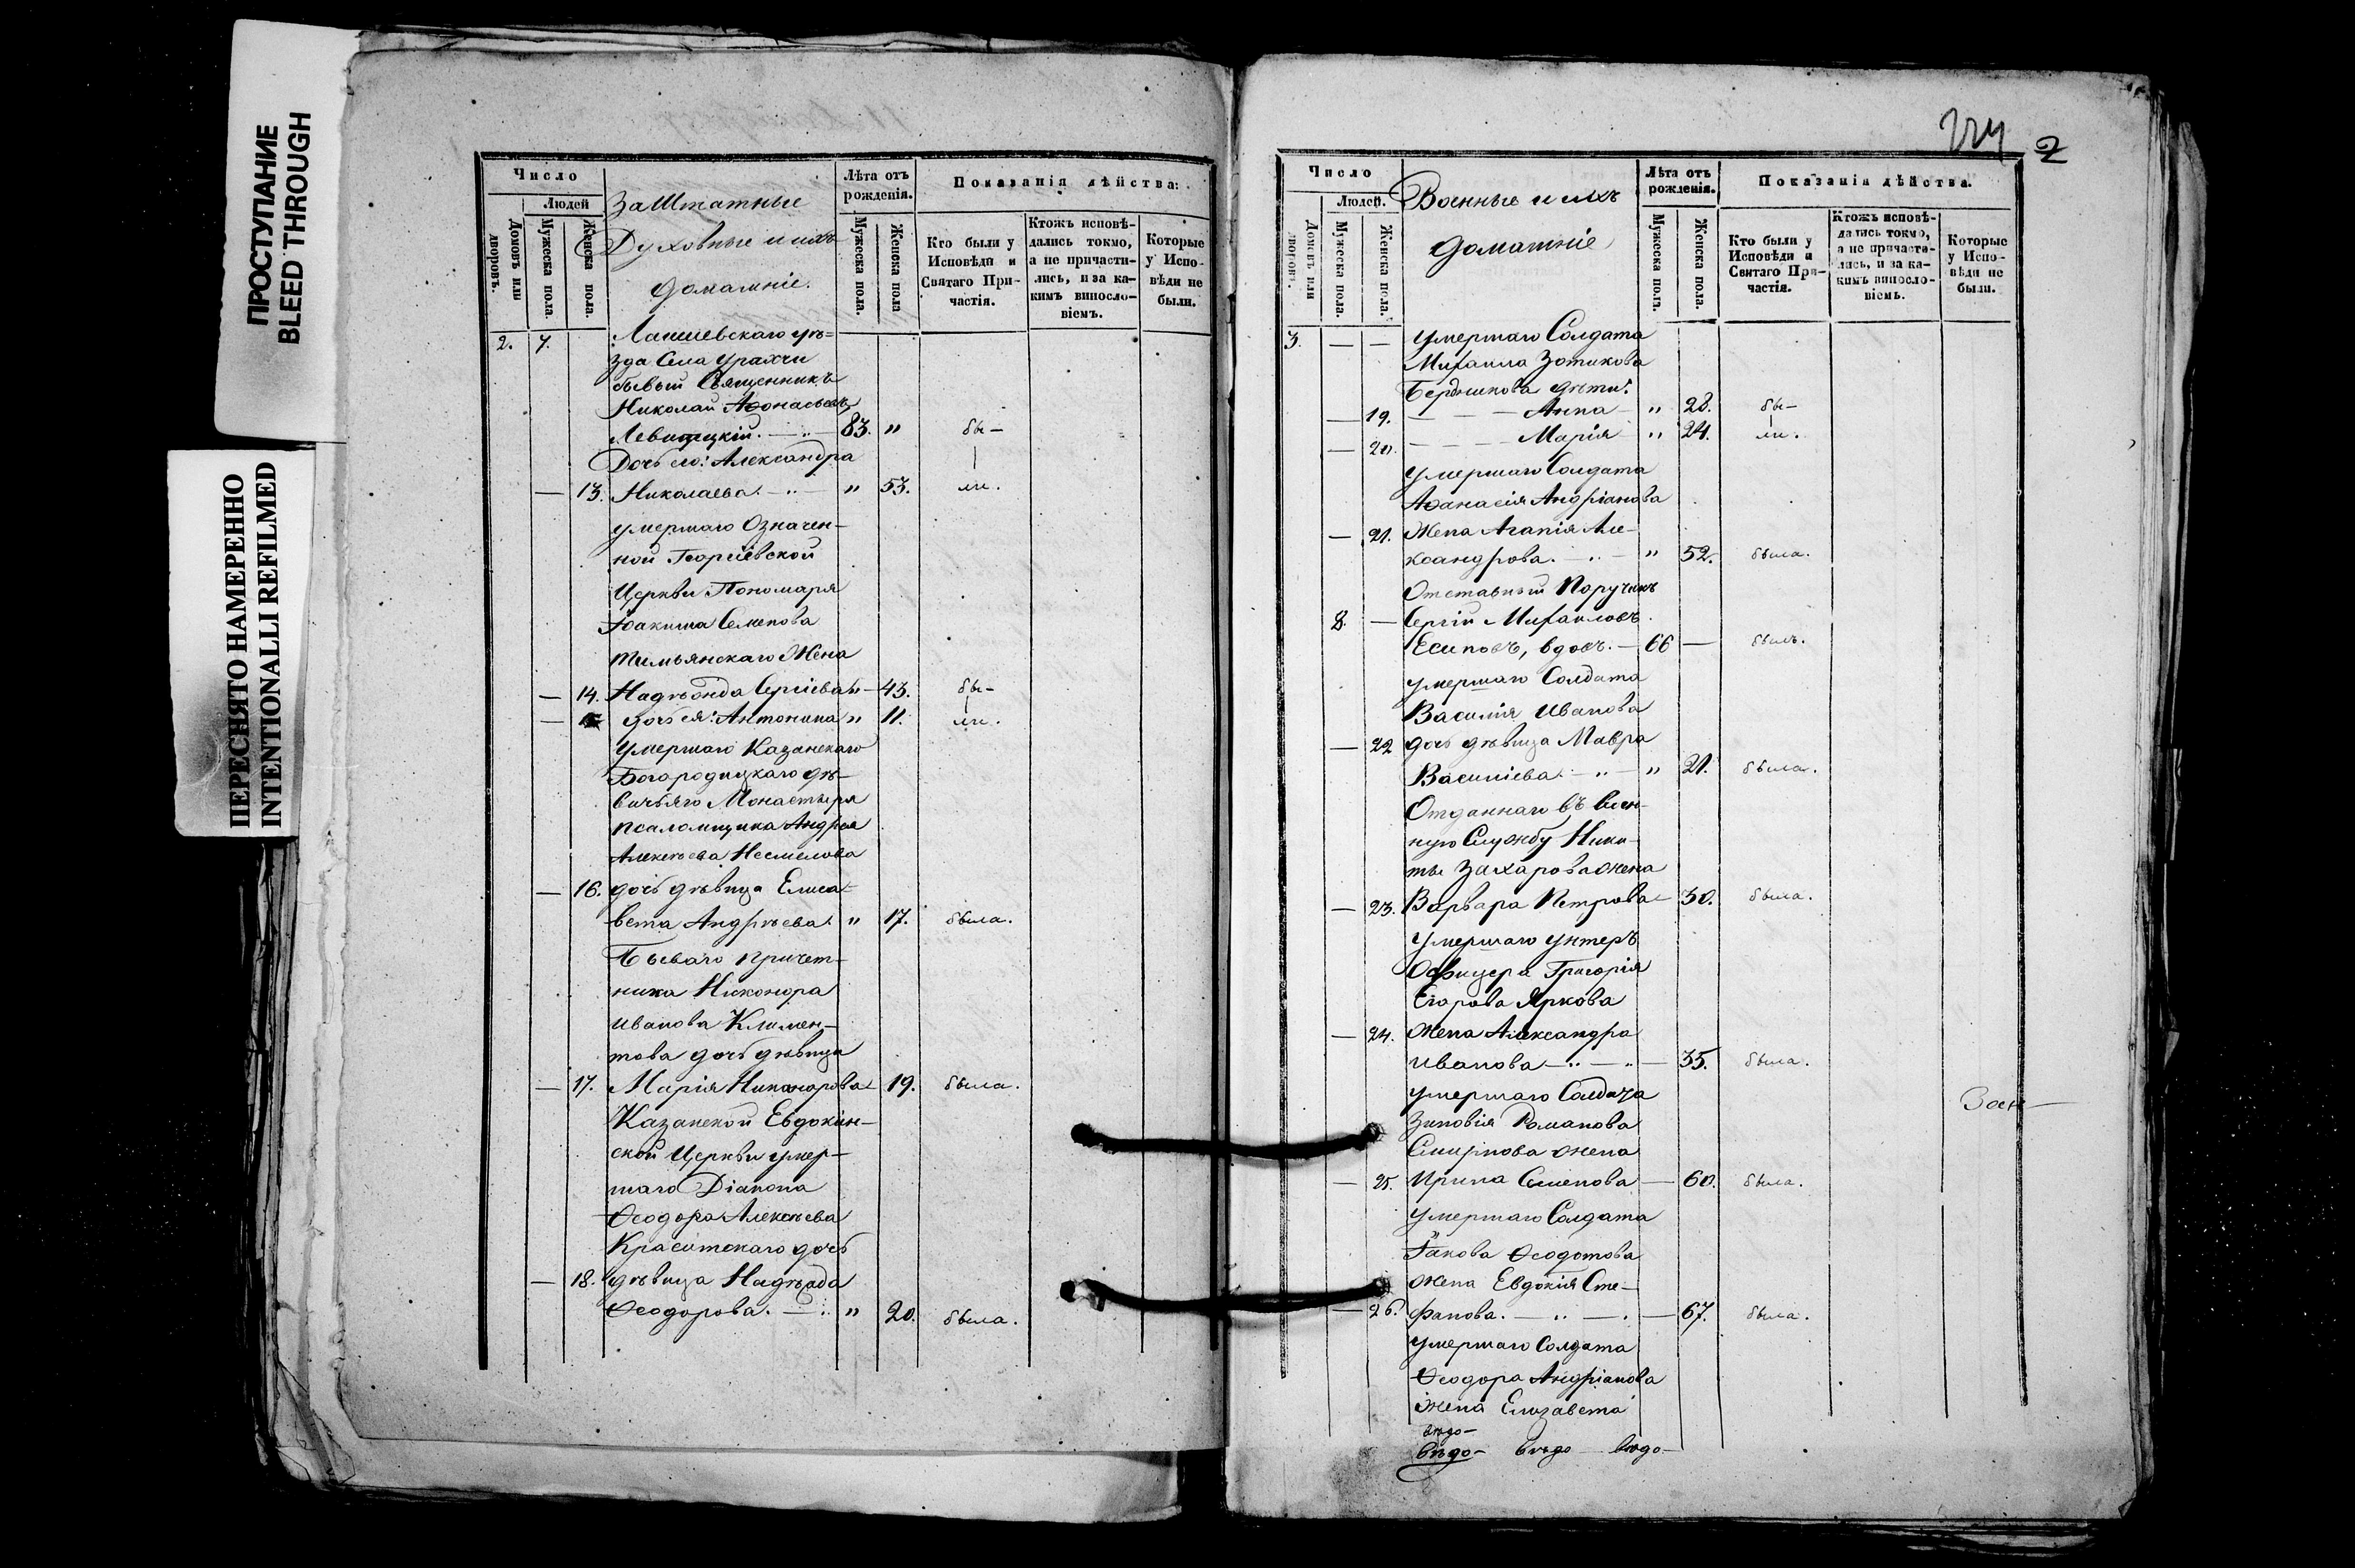 ПРОСТУПАНИЕ
BLEED THROUGH
ПЕРЕСНЯТО НАМЕРЕННО
INTENTIONALLI REFILMED
Число
Людей
Домовъ или дворовъ.
Мужеска пола.
Женска пола.
Заштатные
Духовные и ихъ
домашніе.
Лѣта отъ рожденія.
Мужеска пола.
Женска пола
Показанія дѣйства:
Кто были у Исповѣди и Святаго Причастія.
Ктожъ исповѣдались токмо, а не причастились, и за какимъ винословіемъ.
Которые у Исповѣди не были.
2. 7. Лаишевскаго уѣ-
зда Села Урахчи
бывый Священникъ
Николай Аѳонасьевъ
Левитцкій. — 83. " бы-
Дочь его: Александра
— 13. Николаева. — " 53. ли.
умершаго Означен-
ной Георгіевской
Церкви Пономаря
Іоакима Семенова
Тимьянскаго Жена
— 14. Надѣжда Сергіева " — 43. бы-
— дочь ея: Антонина " 11. ли.
Умершаго Казанскаго
Богородицкаго дѣ-
вичьяго Монастыря
псаломщика Андрея
Алексѣева Несмелова
— 16. дочь дѣвица Елиса-
вета Андрѣева. " 17. была.
Бывшаго причет-
ника Никонора
Иванова Климен-
това дочь дѣвица
— 17. Марія Никонорова — 19. была.
Казанской Евдокіин-
ской Церкви умер-
шаго Діакона
Ѳеодора Алексѣева
Краситскаго дочь
— 18. дѣвица Надѣжда
Ѳеодорова. — " 20. была.
224 2
Число
Людей.
Домовъ или дворовъ.
Мужеска пола.
Женска пола.
Военные и ихъ
домашніе
Лѣта отъ рожденія.
Мужеска пола.
Женска пола.
Показанія дѣйства.
Кто были у Исповѣди и Святаго Причастія.
Ктожъ исповѣдались токмо, а не причастились, и за какимъ винословіемъ.
Которые у Исповѣди не были.
3. — — умершаго Солдата
Михаила Зотикова
Бердникова дѣти:
— 19. — — — Анна — " 28. бы-
— 20. — — — Марія — " 24. ли.
умершаго Солдата
Аѳанасія Андріанова
— 21. Жена Агапія Але-
ксандрова. — " 52. была.
Отставный Поручикъ
8. — Сергій Михаиловъ
Есиповъ, вдовъ. — 66 — былъ.
умершаго Солдата
Василія Иванова
— 22 дочь дѣвица Мавра
Василіева. — " 21. была.
Отданнаго въ воен-
ную Службу Ники-
ты Захарова жена
— 23. Варвара Петрова — 30. была.
Умершаго унтеръ
Офицера Григорія
Егорова Яркова
— 24. жена Александра
Иванова — — 35. была.
умершаго Солдата
Зиновія Романова
Смирнова жена
— 25. Ирина Семенова — 60. была.
Умершаго Солдата
Іакова Ѳеодотова
жена Евдокія Сте-
— 26. фанова. — — 67. была.
Умершаго Солдата
Ѳеодора Андріанова
жена Елизавета
вѣдо-
вѣдо- вѣдо вѣдо-